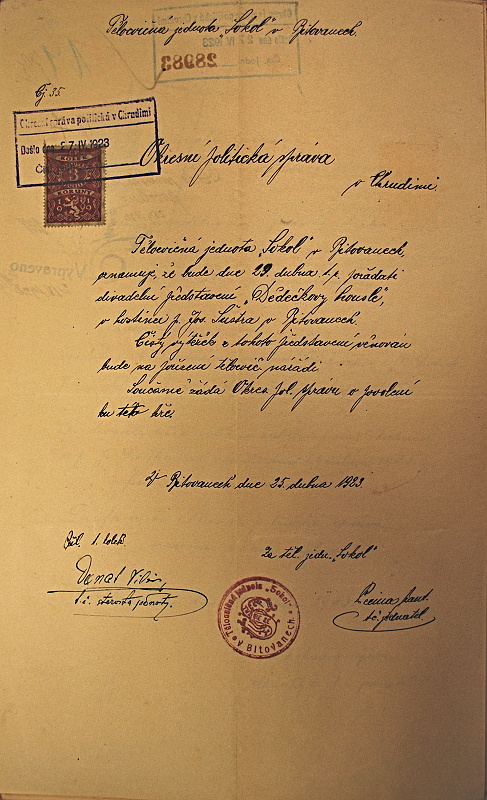 Tělocvičná jednota „Sokol“ v Bítovanech.
28983
Čj 35.
Okresní správa politická v Chrudimi
Došlo dne 27. IV 1923
Okresní politická správa
v Chrudimi.
Tělocvičná jednota „Sokol“ v Bítovanech,
oznamuje, že bude dne 29. dubna t. r. pořádati
divadelní představení „Dědečkovy housle“,
v hostinci p. Jos. Šustra v Bítovanech.
Čistý výtěžek z tohoto představení věnován
bude na pořízení tělocvič. nářadí.
Současně žádá Okres. pol. správu o povolení
ku této hře.
V Bítovanech dne 25. dubna 1923.
Příl. 1. kolek.
Za těl. jedn. „Sokol“
Donát
t. č. starosta jednoty.
t. č. jednatel.
Tělocvičná jednota „Sokol“
v Bítovanech.
Vypraveno